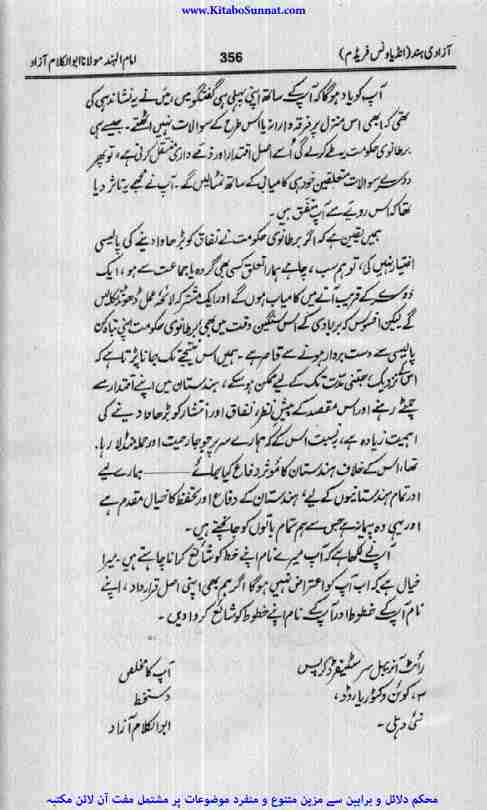 www.KitaboSunnat.com
آزادی ہند (انڈیا ونس فریڈم) 356 امام الہند مولانا ابوالکلام آزاد
آپ کو یاد ہوگا کہ آپ کے ساتھ اپنی پہلی ہی گفتگو میں، میں نے یہ نشاندہی کی
تھی کہ ابھی اس منزل پر فرقہ وارانہ یا اس طرح کے سوالات نہیں اٹھتے۔ جیسے ہی
برطانوی حکومت یہ طے کرلے گی اُسے اصل اقتدار اور ذمے داری منتقل کرنی ہے، تو پھر
دوسرے سوالات متعلقین خود ہی کامیابی کے ساتھ نمٹالیں گے۔ آپ نے مجھے یہ تاثر دیا
تھا کہ اس رویے سے آپ متفق ہیں۔
ہمیں یقین ہے کہ اگر برطانوی حکومت نے نفاق کو بڑھاوا دینے کی پالیسی
اختیار نہیں کی، تو ہم سب، چاہے ہمارا تعلق کسی بھی گروہ یا جماعت سے ہو، ایک
دوسرے کے قریب آنے میں کامیاب ہوں گے اور ایک مشترکہ لائحۂ عمل ڈھونڈ نکالیں
گے لیکن افسوس کہ بربادی کے اس سنگین وقت میں بھی برطانوی حکومت اپنی تباہ کن
پالیسی سے دست بردار ہونے سے قاصر ہے۔ ہمیں اس نتیجے تک جانا پڑتا ہے کہ
اس کے نزدیک، جتنی مدت تک کے لیے ممکن ہوسکے، ہندستان میں اپنے اقتدار سے
چمٹے رہنے اور اس مقصد کے پیشِ نظر، نفاق اور انتشار کو بڑھاوا دینے کی
اہمیت زیادہ ہے، نسبت اس کے کہ ہمارے سر پر جو جارحیت اور حملہ منڈلا رہا
تھا، اس کے خلاف ہندستان کا مؤثر دفاع کیا جائے ــــــ ہمارے لیے
اور تمام ہندستانیوں کے لیے، ہندستان کے دفاع اور تحفظ کا خیال مقدم ہے
اور یہی وہ پیمانہ ہے جس سے ہم تمام باتوں کو جانچتے ہیں۔
آپ نے لکھا ہے کہ آپ میرے نام اپنے خط کو شائع کرانا چاہتے ہیں۔ میرا
خیال ہے کہ اب آپ کو اعتراض نہیں ہوگا اگر ہم بھی اپنی اصل قرارداد، اپنے
نام آپ کے خطوط اور آپ کے نام اپنے خطوط کو شائع کروا دیں۔
رائٹ آنریبل سر سٹیفرڈ کرپس آپ کا مخلص
۳، کوئن وکٹوریا روڈ، دستخط
نئی دہلی۔ ابوالکلام آزاد
محکم دلائل و براہین سے مزین متنوع و منفرد موضوعات پر مشتمل مفت آن لائن مکتبہ